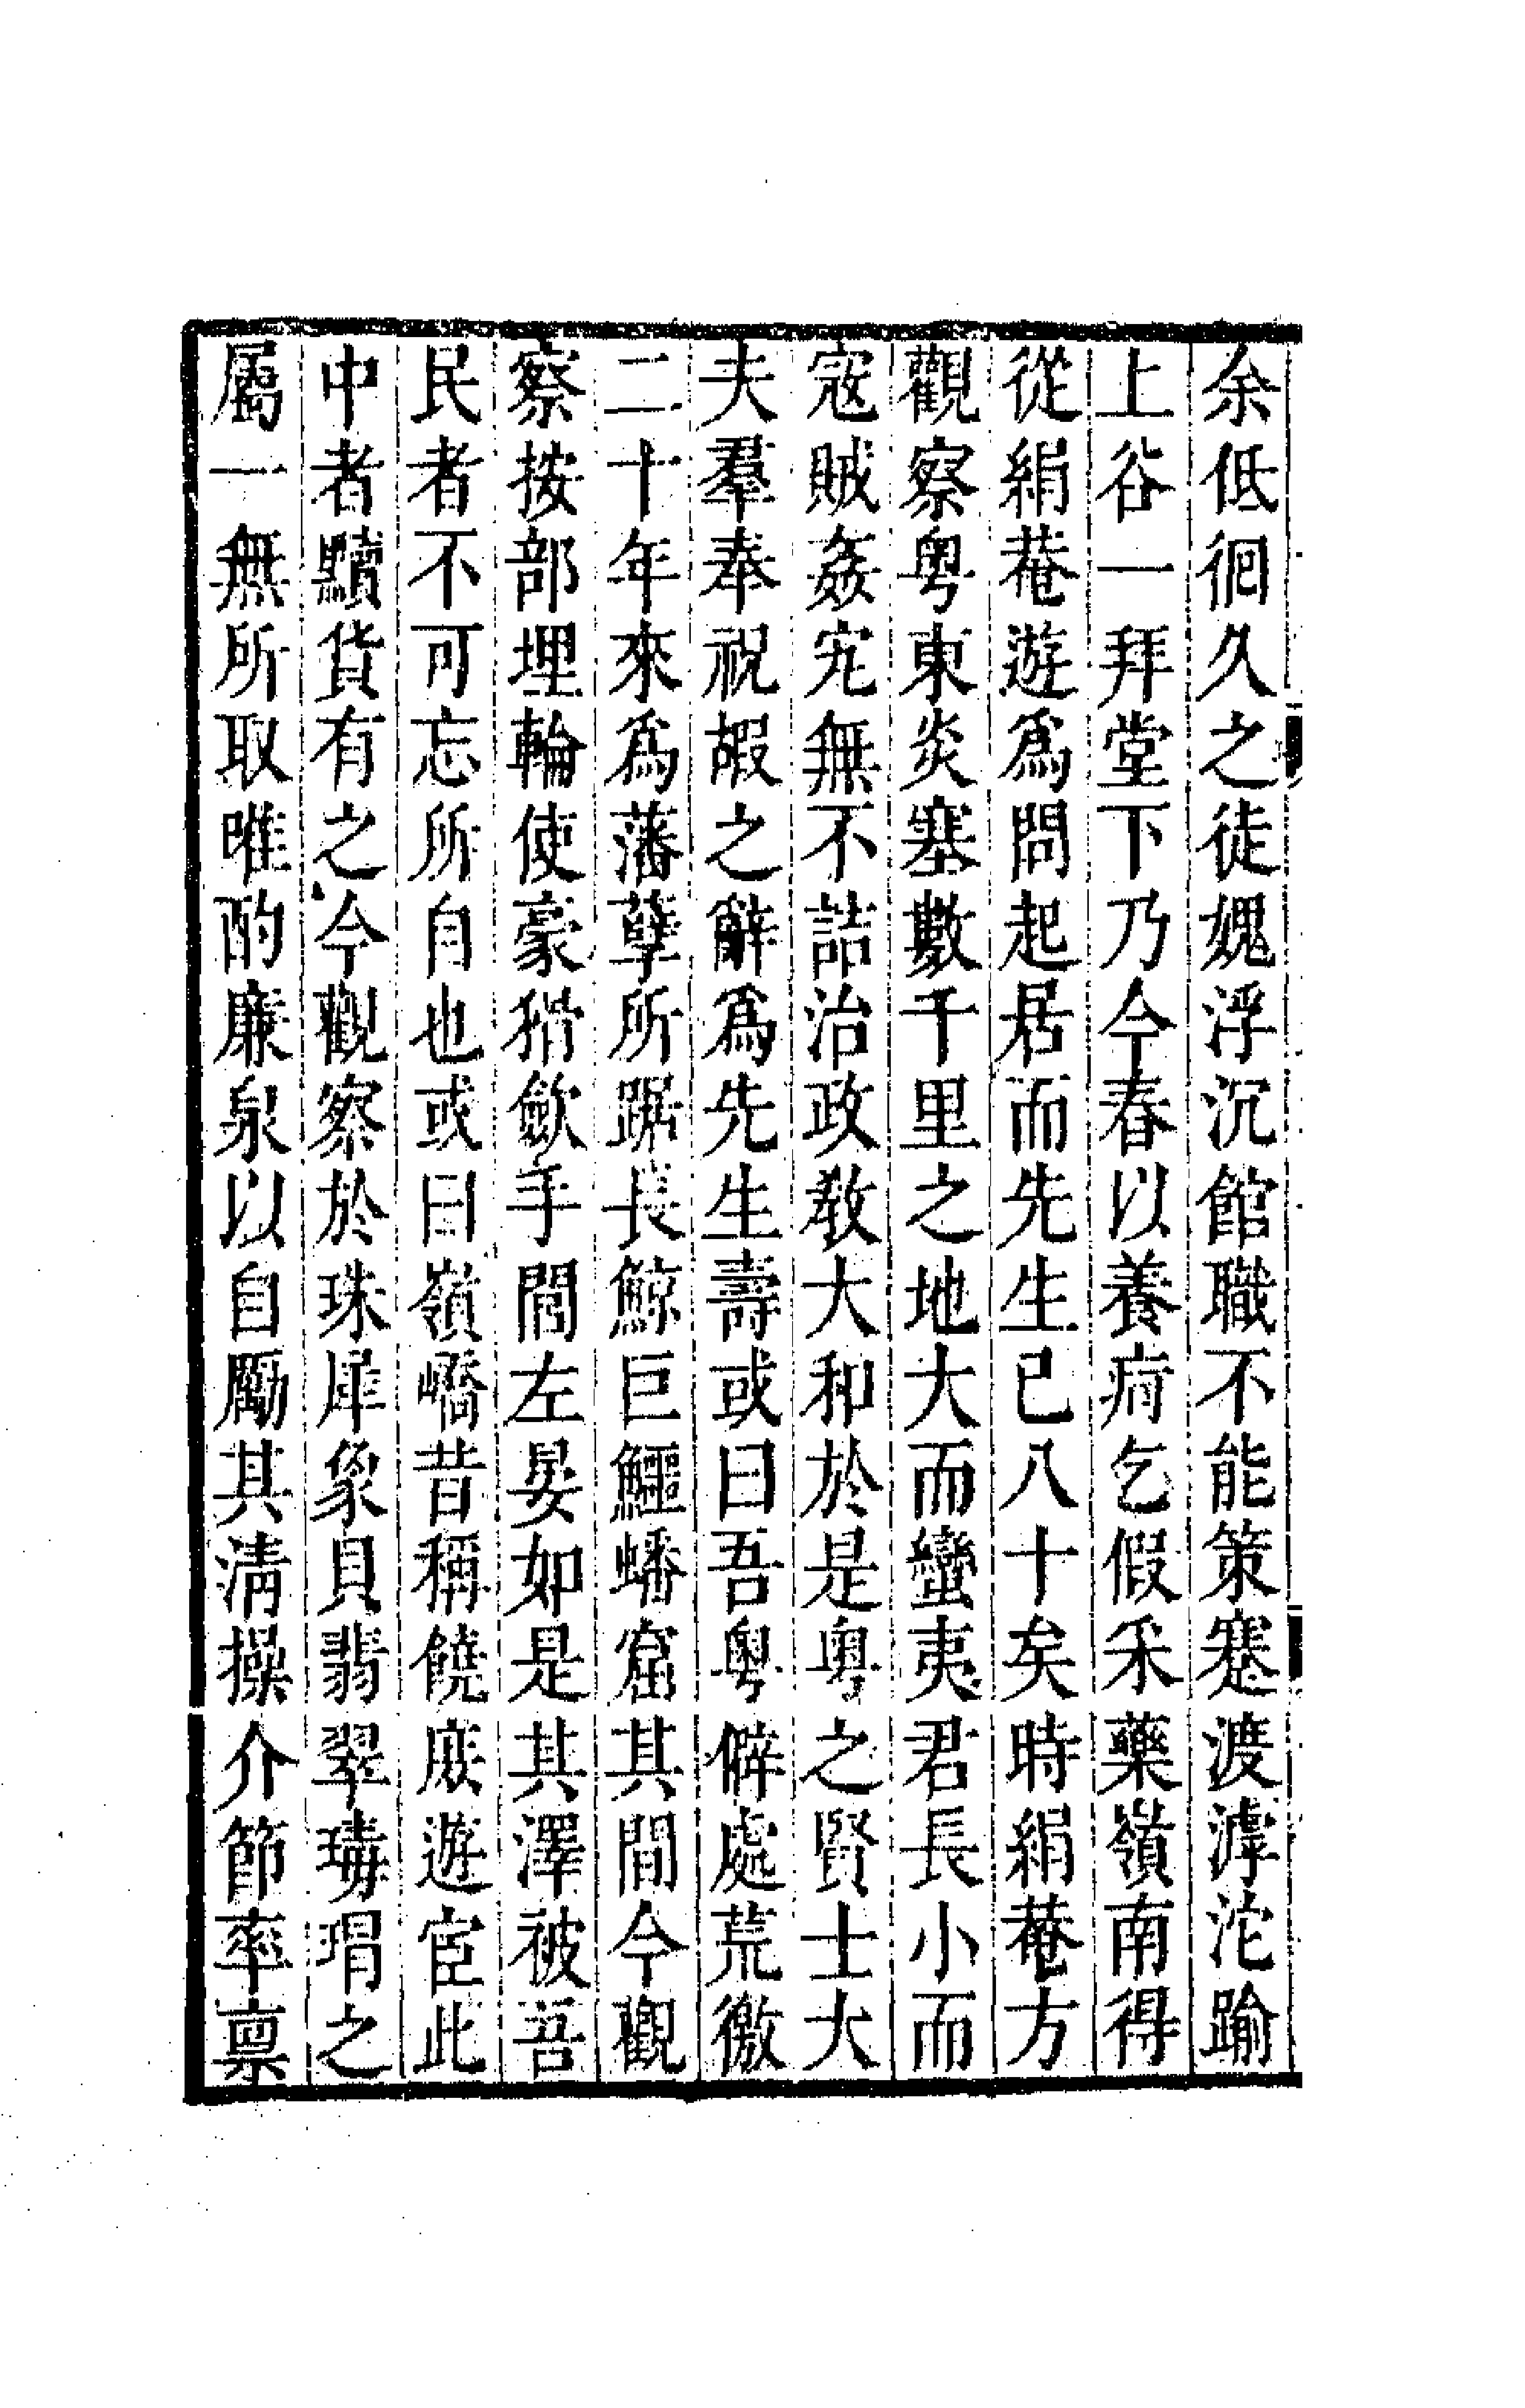 余低徊久之徒媿浮沉館職不能策蹇渡滹沱踰
上谷一拜堂下乃今春以養疴乞假采藥嶺南得
從絹菴遊爲問起居而先生已八十矣時絹菴方
觀察粤東炎塞數千里之地大而蠻夷君長小而
宼賊姦宄無不詰治政敎大和於是粤之賢士大
夫羣奉祝嘏之辭爲先生壽或曰吾粤僻處荒徼
二十年來爲藩孽所踞長鯨巨鱷蟠窟其間今觀
察按部埋輪使豪猾斂手閭左晏如是其澤被吾
民者不可忘所自也或曰嶺嶠昔稱饒庶遊宦此
中者黷貨有之今觀察於珠犀象貝翡翠瑇瑁之
屬一無所取唯酌廉泉以自勵其淸操介節率稟